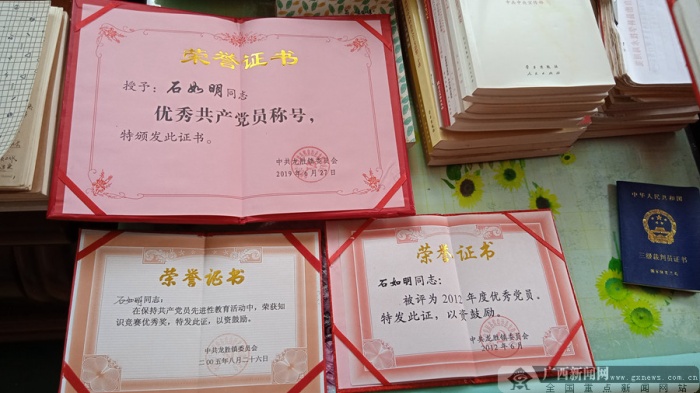 荣誉证书
授予：石如明同志
优秀共产党员称号，
特颁发此证书。
中共龙胜镇委员会
2019年6月27日
荣誉证书
石如明同志：
在保持共产党员先进性教育活动中，荣获知
识竞赛优秀奖，特发此证，以资鼓励。
中共龙胜镇委员会
二00五年八月二十六日
荣誉证书
石如明同志：
被评为2012年度优秀党员。
特发此证，以资鼓励。
中共龙胜镇委员会
2012年6月
学习出版社
人民出版社
中华人民共和国
三级裁判员证书
广西新闻网
www.gxnews.com.cn
全国重点新闻网站